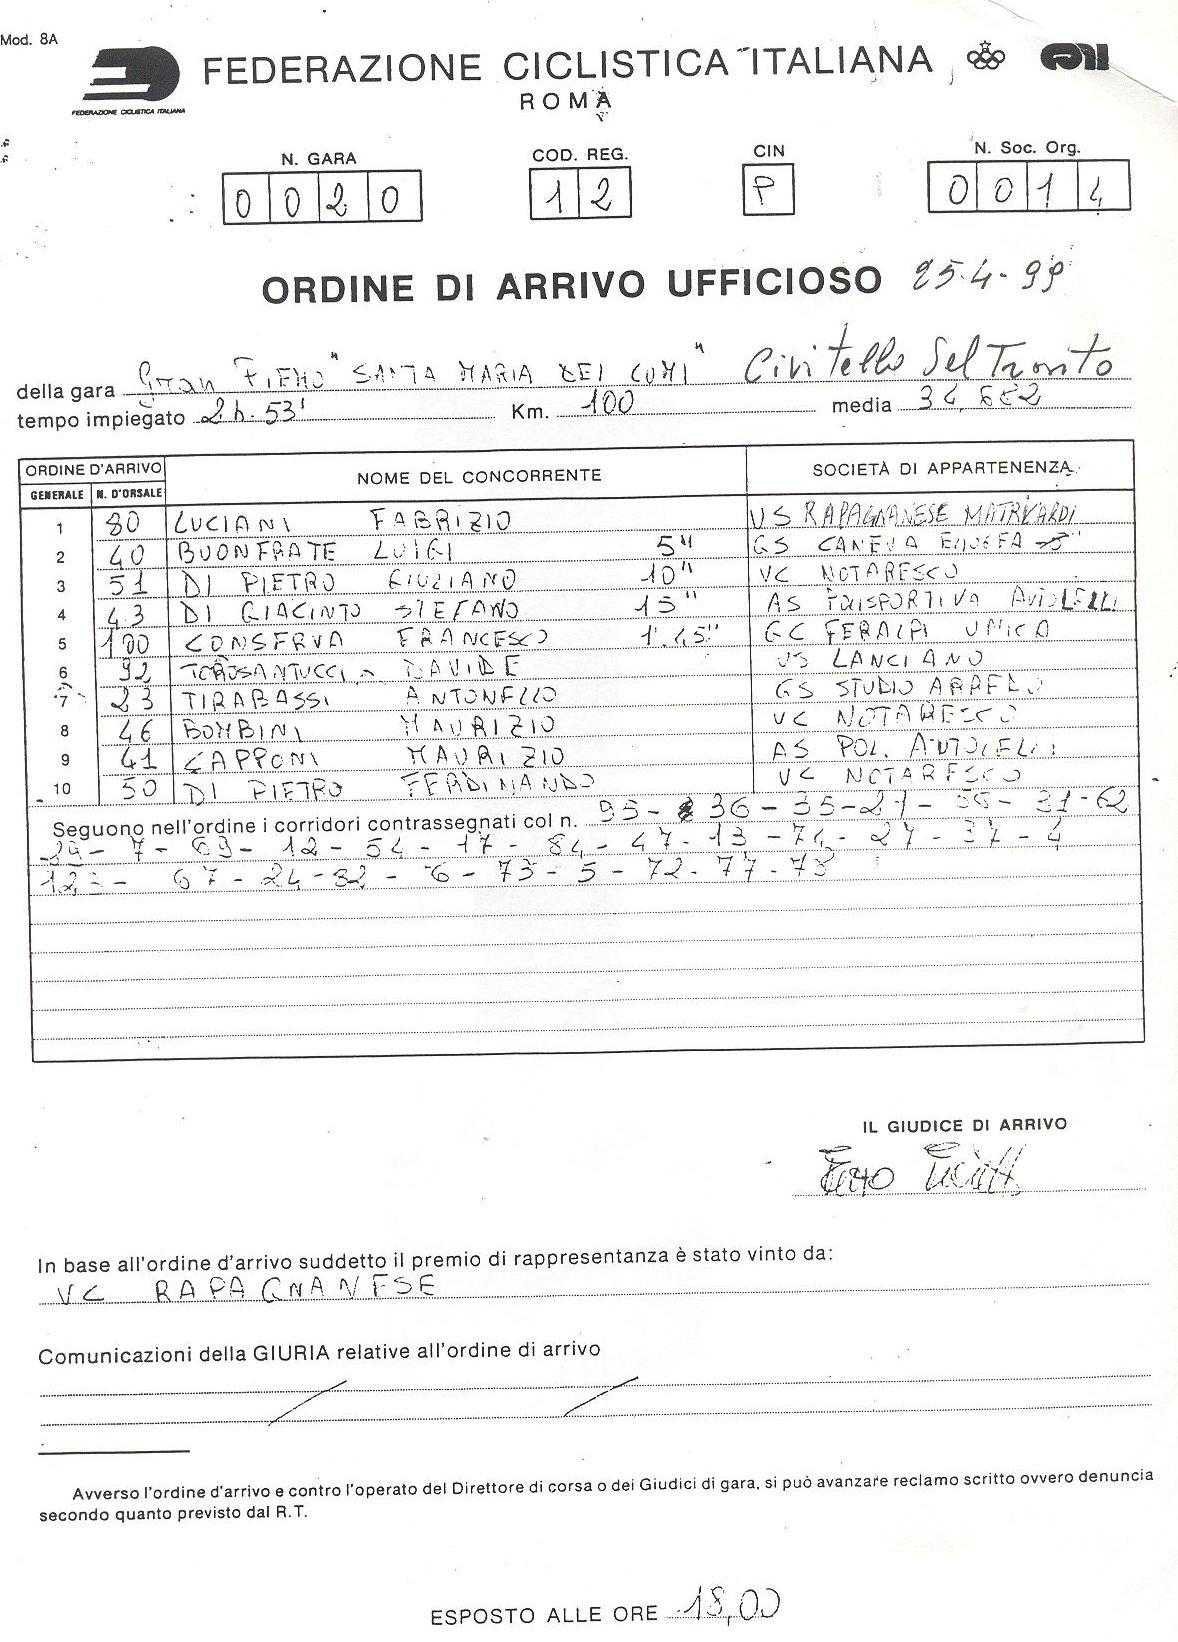 Mod. 8A
FEDERAZIONE CICLISTICA ITALIANA
ROMA
FEDERAZIONE CICLISTICA ITALIANA
N. GARA COD. REG. CIN N. Soc. Org.
0020 12 P 0014
ORDINE DI ARRIVO UFFICIOSO 25.4-99
della gara Gran "SANTA MARIA DEI CUMI" Civitello Del Tronto
tempo impiegato 2h.53' Km. 100 media 34,682
ORDINE D'ARRIVO NOME DEL CONCORRENTE SOCIETÀ DI APPARTENENZA
GENERALE N. D'ORSALE
1 80 LUCIANI FABRIZIO US RAPAGNANESE
2 40 BUONFRATE LUIGI 5" GS CANEVA
3 51 DI PIETRO GIULIANO 10" VC NOTARESCO
4 43 DI GIACINTO STEFANO 15" AS
5 100 CONSERVA FRANCESCO 1'.45" GC FERALPI
6 92 TOROSANTUCCI DAVIDE US LANCIANO
7 23 TIRABASSI ANTONELLO GS STUDIO
8 46 BOMBINI MAURIZIO VC NOTARESCO
9 41 CAPPONI MAURIZIO AS POL.
10 50 DI PIETRO FERDINANDO VC NOTARESCO
Seguono nell'ordine i corridori contrassegnati col n. 95 - 36 - 35 - 21 - 56 - 31 - 62
29 - 7 - 69 - 12 - 54 - 17 - 84 - 47 - 13 - 74 - 27 - 37 - 4
- 67 - 24 - 32 - 6 - 73 - 5 - 72 - 77 - 78
IL GIUDICE DI ARRIVO
In base all'ordine d'arrivo suddetto il premio di rappresentanza è stato vinto da:
VC RAPAGNANESE
Comunicazioni della GIURIA relative all'ordine di arrivo
Avverso l'ordine d'arrivo e contro l'operato del Direttore di corsa o dei Giudici di gara, si può avanzare reclamo scritto ovvero denuncia
secondo quanto previsto dal R.T.
ESPOSTO ALLE ORE 18,00